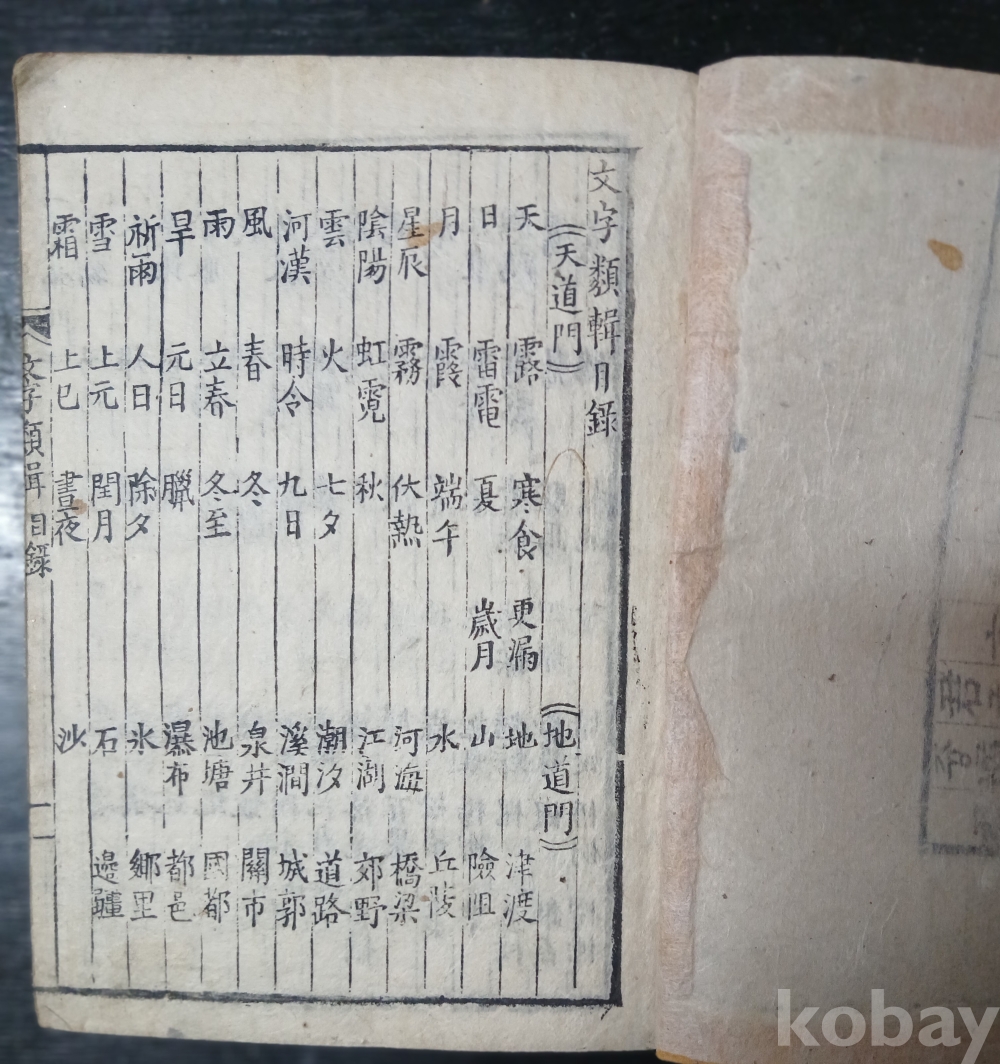 文字類輯目錄
《天道門》 《地道門》
天 露 寒食 更漏 地 津渡
日 雷電 夏 歲月 山 險阻
月 霞 端午 水 丘陵
星辰 霧 伏熱 河海 橋梁
陰陽 虹霓 秋 江湖 郊野
雲 火 七夕 潮汐 道路
河漢 時令 九日 溪澗 城郭
風 春 冬 泉井 關市
雨 立春 冬至 池塘 國都
旱 元日 臘 瀑布 都邑
祈雨 人日 除夕 氷 鄉里
雪 上元 閏月 石 邊疆
霜 上巳 晝夜 沙
文字類輯 目錄 一
kobay